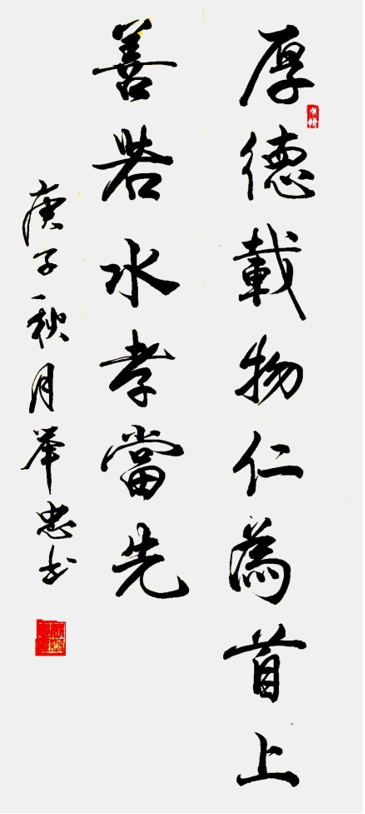 厚德載物仁為首上
善若水孝當先
庚子秋月舉忠书